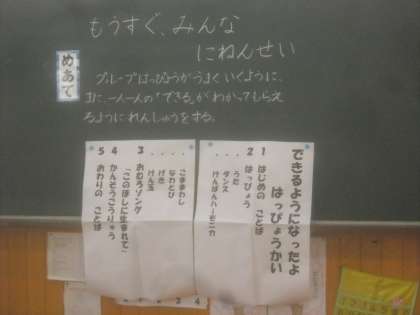 もうすぐ、みんな
にねんせい
めあて
グループはっぴょうがうまくいくように、
また、一人一人の「できる」がわかってもらえ
るようにれんしゅうをする。
できるようになったよ
はっぴょうかい
1 はじめの ことば
2 はっぴょう
・ うた
・ ダンス
・ けんばんハーモニカ
・ こままわし
・ なわとび
・ げき
・ けん玉
3 おむろソング
「このほしに生まれて」
4 かんそうこうりゅう
5 おわりの ことば